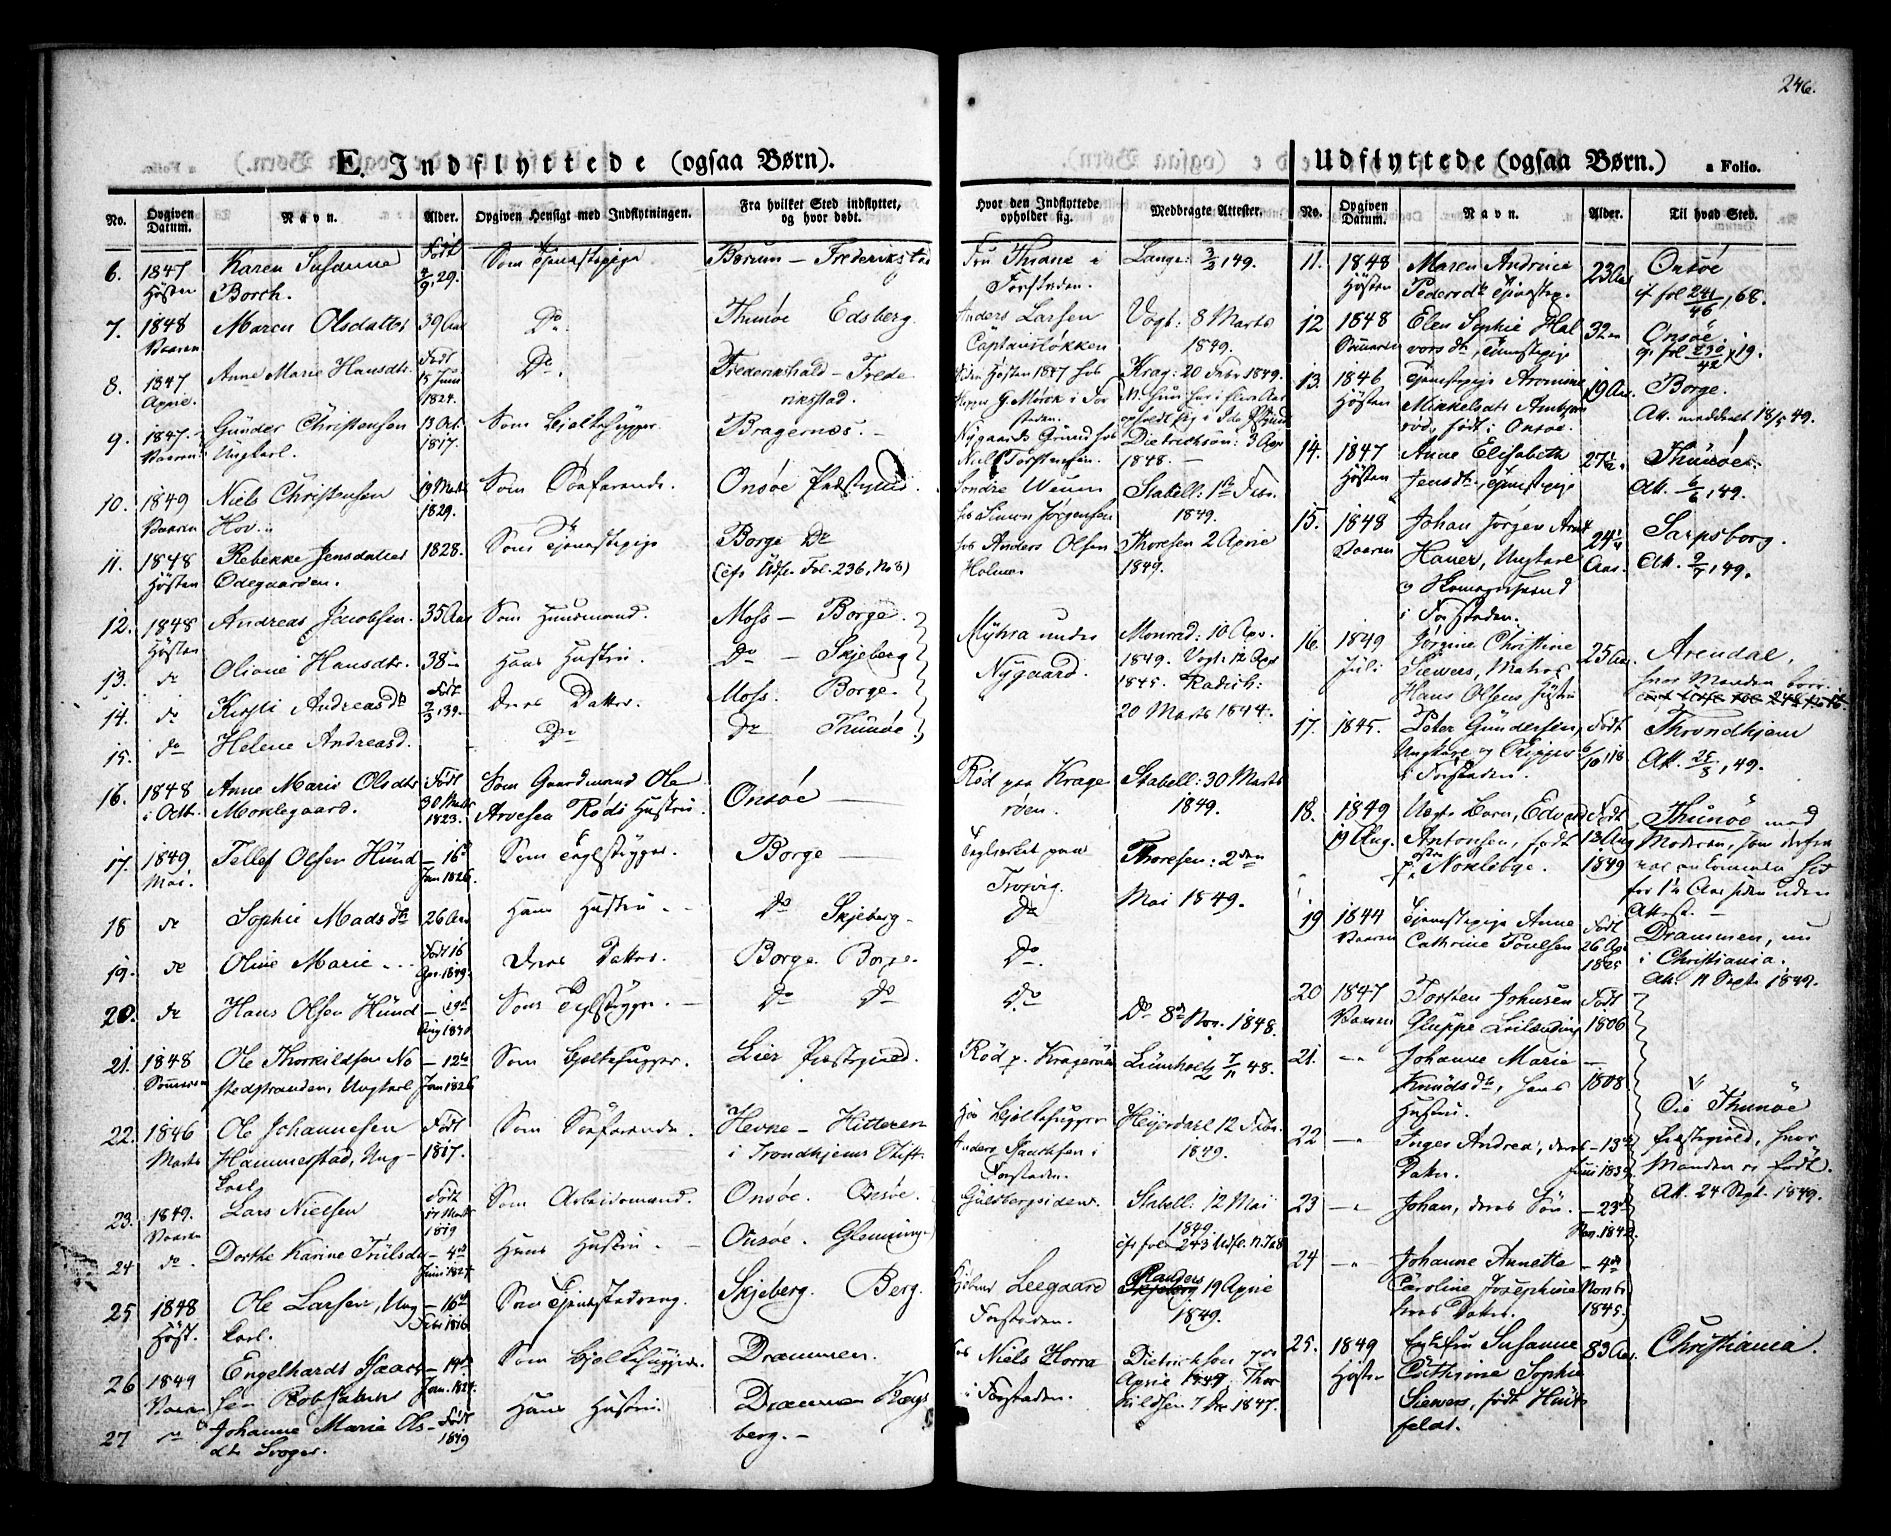 246.
E. Indflyttede (ogsaa Børn).
No. Opgiven Datum. Navn. Alder. Opgiven Hensigt med Indflytningen. Fra hvilket Sted indflyttet, og hvor døbt. Hvor den Indflyttede opholder sig. Medbragte Attester.
6. 1847 Høsten Karen Susanne Borch. Født 29. Som Tjenestepige Borum — Frederikstad Fru Thrane i Forstaden. Lange: 3/3, 49.
7. 1848 Vaaren Maren Olsdatter 39 Aar Do. Thunøe Edsberg. Anders Larsen Captainsløkken Vogt: 8 Marts 1849.
8. 1847 April. Anne Marie Hansdtr. Født 15 Juni 1824. Do. Frederikshald — Frederiksstad. Siden Høsten 1847 hos Krag: 20 Febr 1849.
9. 1847. Vaaren Gunder Christensen Ungkarl. 13 Oct. 1817. Bragernæs. — Nygaards Grund hos Torstensen. Dietrichson: 3 Apr 1848. —
10. 1849 Vaaren Niels Christensen Hov. 19 Marts 1829. Som Søefarende. Onsøe Præstegield. Søndre Weum hos Simon Jørgensen Stabell: 16 Febr. 1849.
11. 1848 Høsten Rebekke Jensdatter Ødegaarden. 1828. Som Tjenestepige Borge Do (cfr Udfl. Fol. 236, No 8) hos Anders Olsen Holmen Thoresen 2 April 1849.
12. 1848 Høsten Andreas Jacobsen. 35 Aar Som Huusmand. Moss — Borge. Myhra under Nygaard. Monrad: 10 Apr. 1849. Vogt: 12 Apr 1845. 20 Marts 1844.
13. do Oliane Hansdtr. 38 — Hans Hustru. Do — Skjeberg
14. do Kirsti Andreasdtr Født 2/3, 39. Deres Datter. Moss. Borge.
15. do Helene Andreasd. Do Do Thunøe
16. 1848 i Octb. Anne Marie Olsdtr Moklegaard. Født 30 Marts 1823. Som Gaardmand Ole Arvesen Røds Hustru. Onsøe — Rød paa Kragerøen. Stabell: 30 Marts 1849.
17. 1849 Mai. Tellef Olsen Hünd — 16d Jan 1826. Som Teglstryger. Borge — Teglverket paa Trosvig. Thoresen: 2den Mai 1849.
18 do Sophie Madsdtr 26 Aar Hans Hustru. — Do Skjeberg — Do
19. do Oline Marie — Født 16 Apr. 1849. Deres Datter. Borge. Borge. Do.
20. do Hans Olsen Hünd — 19d Aug 1830 Som Teglstryger. — Do Do Do Do 8d Nov. 1848.
21. 1848 Sommeren Ole Thorkildsen Nostedstranden, Ungkarl — 12te Jan 1826 Lier Præstegield. Rød p. Kragerøen Lümholtz 7/11 48.
22. 1846 Marts Ole Johannesen Hammerstad, Ungkarl. Født 1817. Som Søefarende. Hevne — Hitteren i Trondhjems Stift. Anders Isachsen i Forstaden. Heyerdahl 12 Febr. 1849.
23. 1849. Vaaren Lars Nielsen Født 17 Marts 1819 Som Arbeidsmand. Onsøe. Onsøe. Guldbergsiden. Stabell: 12 Mai 1849. cfr fol. 243 Udfl. N. 7&8
24 do. Dorthe Karine Trulsdtr — 4d Juni 1827. Hans Hustru. — Onsøe. Glemminge
25 1848 Høst. Ole Larsen, Ungkarl. — 16d Febr 1816 Som Tjenestedreng. Skjeberg. Berg. Leegaard Forstaden. 19 April 1849.
26 1849 Vaaren Engelhardt Isaachsen Robsahm — 19d Jan. 1824. Drammen. hos Niels Horra i Forstaden. Dietrichson 7de April 1849. Thorkildsen 7 Dec 1847.
27 do Johanne Marie Olsdtr Svoger. Født 1819 Hans Hustru Drammen Kragsberg. —
Udflyttede (ogsaa Børn.) a Folio.
No. Opgiven Datum. Navn. Alder. Til hvad Sted.
11. 1848 Høsten Maren Andrine Pedersdtr Tjenestep. 23 Aar Onsøe cf. fol 241/46, 68.
12 1848 Sommeren Elen Sophie Halvorsdtr, Tjenestepige 32 — Onsøe. cf. fol 230/42, 19.
13. 1846 Høsten Tjenestepige Aromine Mikkelsdtr, født i Onsøe. 19 Aar. Borge. Att. meddeelt 18/5 49.
14. 1847 Høsten Anne Elisabeth Jensdtr, Tjenestepige 27½ Thunøe. Att. 6/6, 49.
15. 1848 Vaaren Johan Jørgen Arnt Hauer, Ungkarl og Skomagersvend i Forstaden. 24¼ Aar. Sarpsborg. Att. 2/7, 49.
16. 1849 Juli: Jørgine Christine Siewers, Matros Hans Olsens Hustru 25 Aar. Arendal, hvor Manden boer.
17. 1845. Peter Gundersen, Ungkarl og Skipper i Forstaden. Født 6/10 18 Throndhjem Att. 25/3, 49.
18. 1849 19 Aug. Uægte Barn, Edvard Antonsen, født paa Noklebye. Født 13 Aug 1849 Thunøe med Moderen, som derfra var ankommen hid for 1½ Aar siden uden Attest. —
19 1844 Vaaren Tjenestepige Anne Cathrine Poulsen Født 26 Apr 1825 Drammen, nu i Christiania. Att. 11 Sept. 1849.
20 1847 Vaaren Torsten Johnsen Gluppe Født 1806
21. — " Johanne Marie Knudsdtr, hans Hustru. — 1808 Til Thunøe Præstegield, hvor Manden er født. Att. 24 Sept. 1849.
22 — " Inger Andrea, deres Datter. — 13de Juni 1839
23 — " Johan, deres Søn. — 23d Nov. 1842
24 — " Johanne Annette Caroline Josephine deres Datter. — 4d Novbr 1845.
25. 1849 Høsten Enkefru Susanne Cathrine Sophie Siewers, født Huitfeldt. 83 Aar. Christiania.